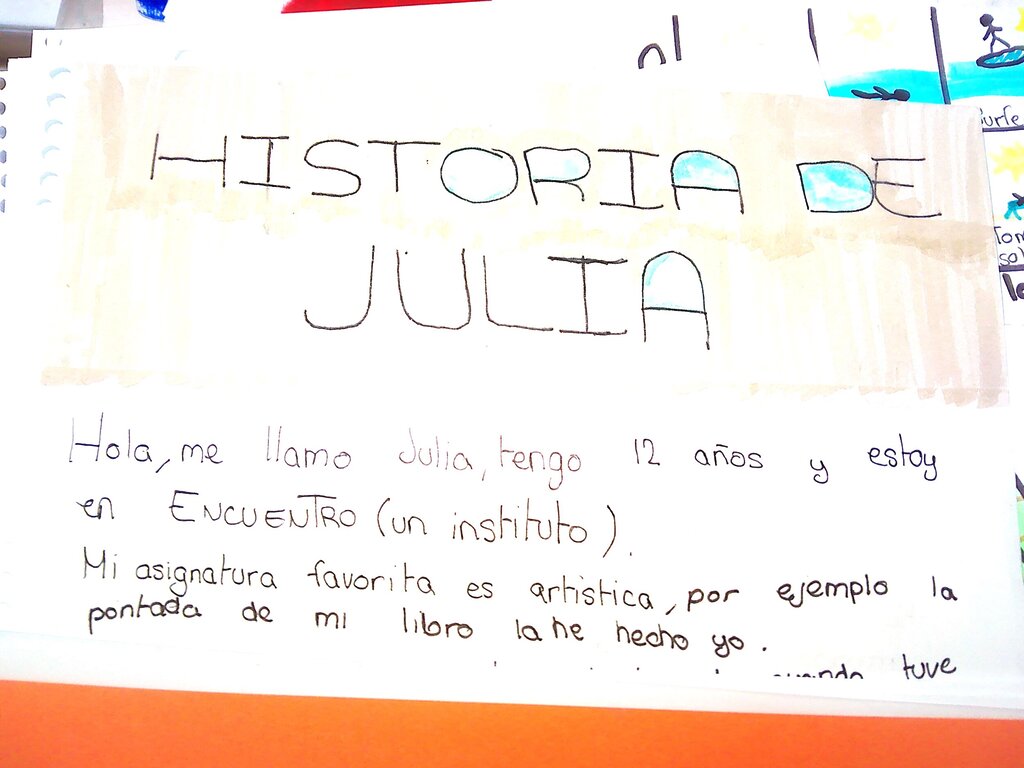 HISTORIA DE
JULIA
Hola, me llamo Julia, tengo 12 años y estoy
en ENCUENTRO (un instituto).
Mi asignatura favorita es artistica, por ejemplo la
pontada de mi libro la he hecho yo.
cuando tuve